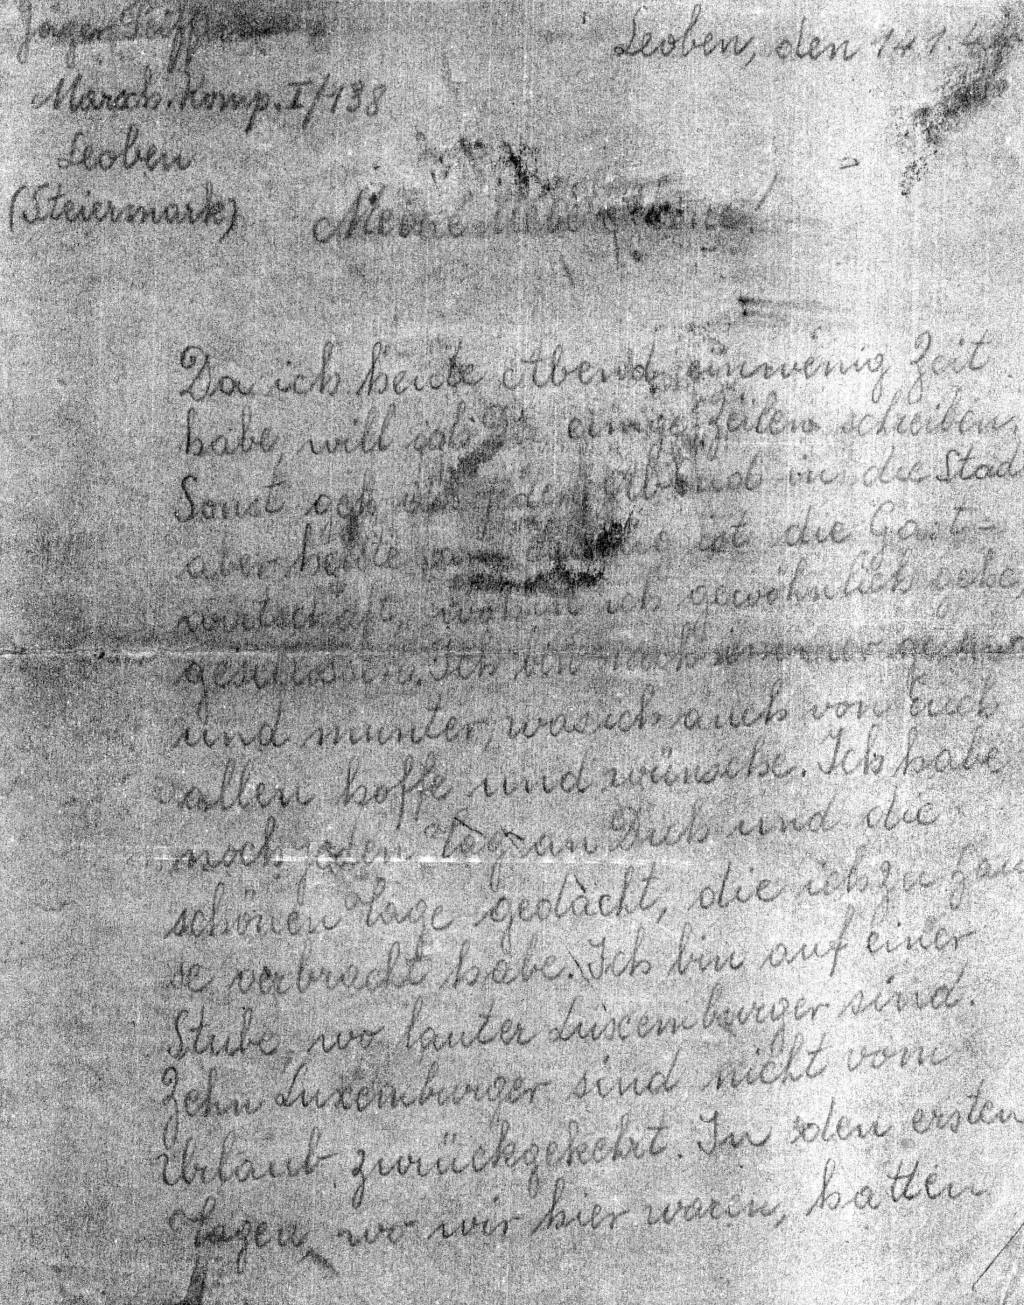 Jäger
Leoben, den 14.1.44
Marsch. Komp. I/138
Leoben
(Steiermark)
Meine liebe
Da ich heute Abend einwenig Zeit
habe, will ich Dir einige Zeilen schreiben.
Sonst geh ich jeden Abend in die Stad
aber heute ist die Gast-
wirtschaft, wohin ich gewöhnlich gehe,
geschlossen. Ich bin noch immer gesund
und munter, was ich auch von Euch
allen hoffe und wünsche. Ich habe
noch jeden Tag an Dich und die
schönen Tage gedacht, die ich zu Hau
se verbracht habe. Ich bin auf einer
Stube, wo lauter Luxemburger sind.
Zehn Luxemburger sind nicht vom
Urlaub zurückgekehrt. In den ersten
Tagen, wo wir hier waren, hatten